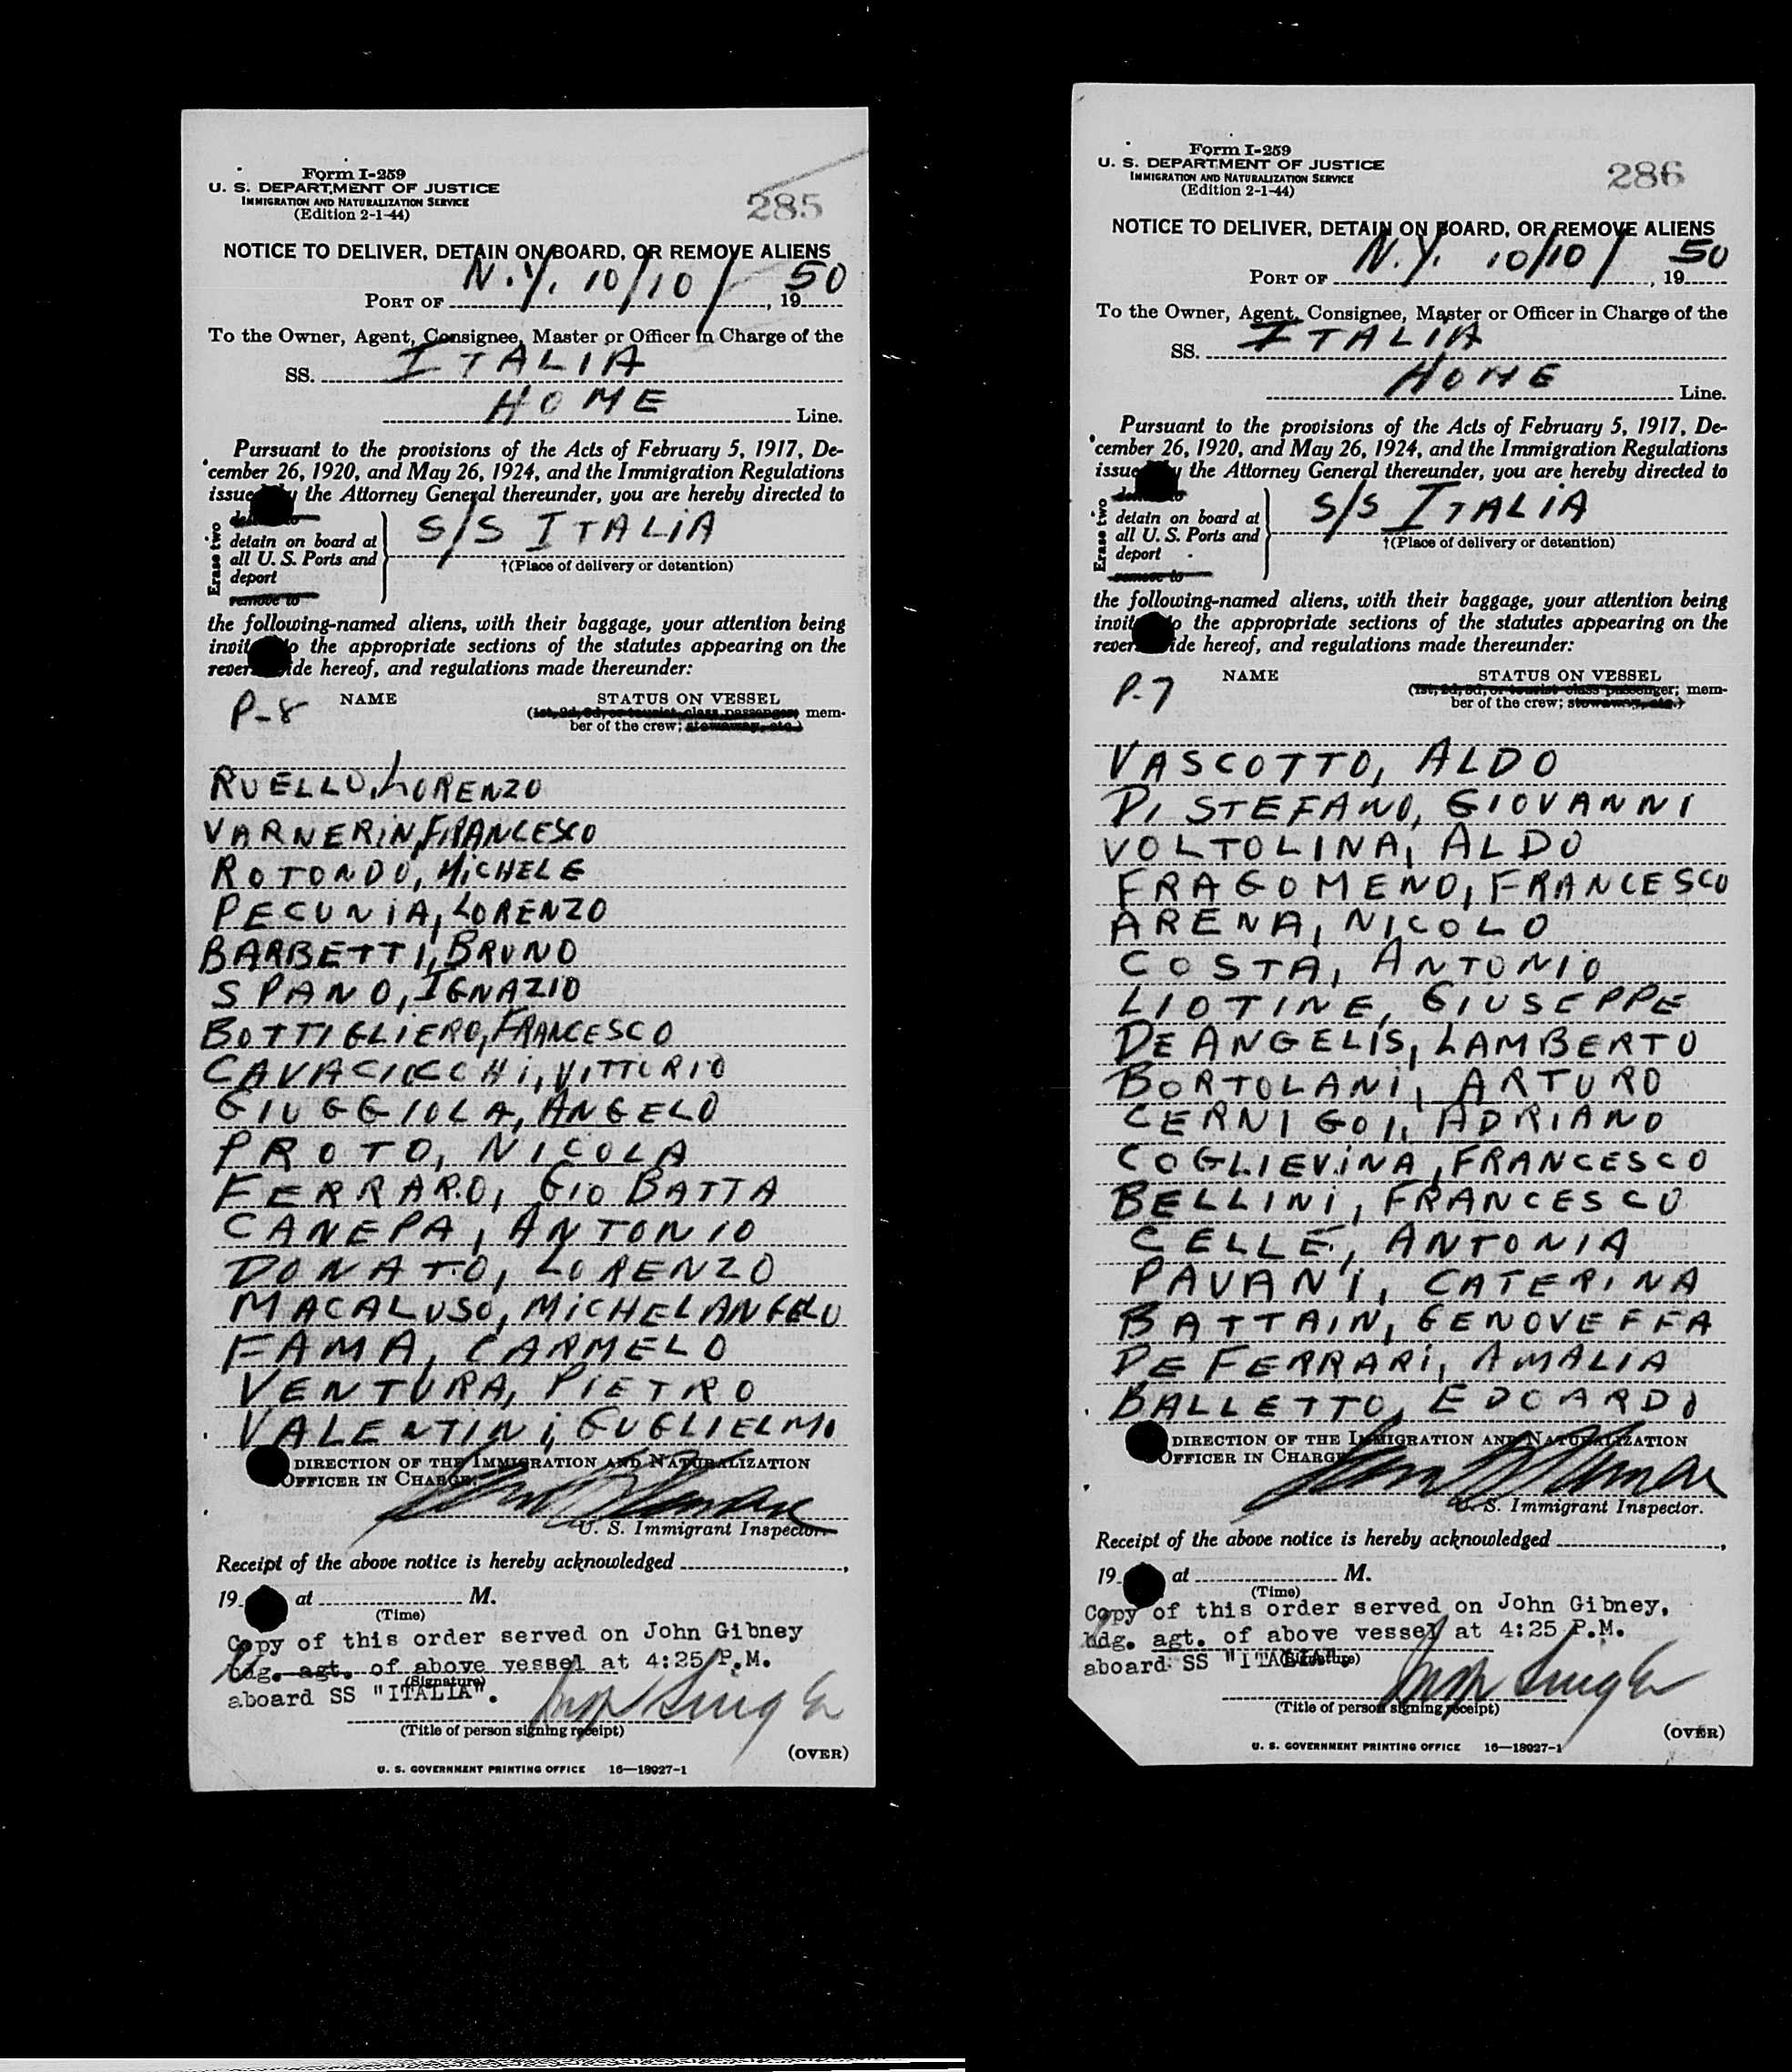 Form I-259
U. S. DEPARTMENT OF JUSTICE
IMMIGRATION AND NATURALIZATION SERVICE
(Edition 2-1-44)
285
NOTICE TO DELIVER, DETAIN ON BOARD, OR REMOVE ALIENS
PORT OF N.Y. 10/10/, 1950
To the Owner, Agent, Consignee, Master or Officer in Charge of the
SS. ITALIA
HOME Line.
Pursuant to the provisions of the Acts of February 5, 1917, De-
cember 26, 1920, and May 26, 1924, and the Immigration Regulations
issue y the Attorney General thereunder, you are hereby directed to
Erase two
detain on board at
all U. S. Ports and
deport
remove to
S/S ITALIA
†(Place of delivery or detention)
the following-named aliens, with their baggage, your attention being
invit o the appropriate sections of the statutes appearing on the
rever ide hereof, and regulations made thereunder:
P-8 NAME STATUS ON VESSEL
(1st, 2d, 3d, or tourist class passenger; mem-
ber of the crew; stowaway, etc.)
RUELLO, LORENZO
VARNERIN, FRANCESCO
ROTONDO, MICHELE
PECUNIA, LORENZO
BARBETTI, BRUNO
SPANO, IGNAZIO
BOTTIGLIERO, FRANCESCO
CAVACIOCCHI, VITTORIO
GIUGGIOLA, ANGELO
PROTO, NICOLA
FERRARO, GIO BATTA
CANEPA, ANTONIO
DONATO, LORENZO
MACALUSO, MICHELANGELO
FAMA, CARMELO
VENTURA, PIETRO
VALENTINI, GUGLIELMO
DIRECTION OF THE IMMIGRATION AND NATURALIZATION
OFFICER IN CHARGE.
U. S. Immigrant Inspector.
Receipt of the above notice is hereby acknowledged ,
19 at M.
(Time)
Copy of this order served on John Gibney
bdg. agt. of above vessel at 4:25 P.M.
(Signature)
aboard SS "ITALIA".
(Title of person signing receipt)
(OVER)
U. S. GOVERNMENT PRINTING OFFICE 16—18927-1
Form I-259
U. S. DEPARTMENT OF JUSTICE
IMMIGRATION AND NATURALIZATION SERVICE
(Edition 2-1-44)
286
NOTICE TO DELIVER, DETAIN ON BOARD, OR REMOVE ALIENS
PORT OF N.Y. 10/10/, 1950
To the Owner, Agent, Consignee, Master or Officer in Charge of the
SS. ITALIA
HOME Line.
Pursuant to the provisions of the Acts of February 5, 1917, De-
cember 26, 1920, and May 26, 1924, and the Immigration Regulations
issue y the Attorney General thereunder, you are hereby directed to
Erase two
detain on board at
all U. S. Ports and
deport
remove to
S/S ITALIA
†(Place of delivery or detention)
the following-named aliens, with their baggage, your attention being
invit o the appropriate sections of the statutes appearing on the
rever ide hereof, and regulations made thereunder:
P-7 NAME STATUS ON VESSEL
(1st, 2d, 3d, or tourist class passenger; mem-
ber of the crew; stowaway, etc.)
VASCOTTO, ALDO
DI STEFANO, GIOVANNI
VOLTOLINA, ALDO
FRAGOMENO, FRANCESCO
ARENA, NICOLO
COSTA, ANTONIO
LIOTINE, GIUSEPPE
DE ANGELIS, LAMBERTO
BORTOLANI, ARTURO
CERNIGOI, ADRIANO
COGLIEVINA, FRANCESCO
BELLINI, FRANCESCO
CELLE, ANTONIA
PAVANI, CATERINA
BATTAIN, GENOVEFFA
DE FERRARI, AMALIA
BALLETTO, EDOARDO
DIRECTION OF THE IMMIGRATION AND NATURALIZATION
OFFICER IN CHARGE
U. S. Immigrant Inspector.
Receipt of the above notice is hereby acknowledged ,
19 at M.
(Time)
Copy of this order served on John Gibney,
bdg. agt. of above vessel at 4:25 P.M.
aboard SS "ITALIA".
(Signature)
(Title of person signing receipt)
(OVER)
U. S. GOVERNMENT PRINTING OFFICE 16—18927-1